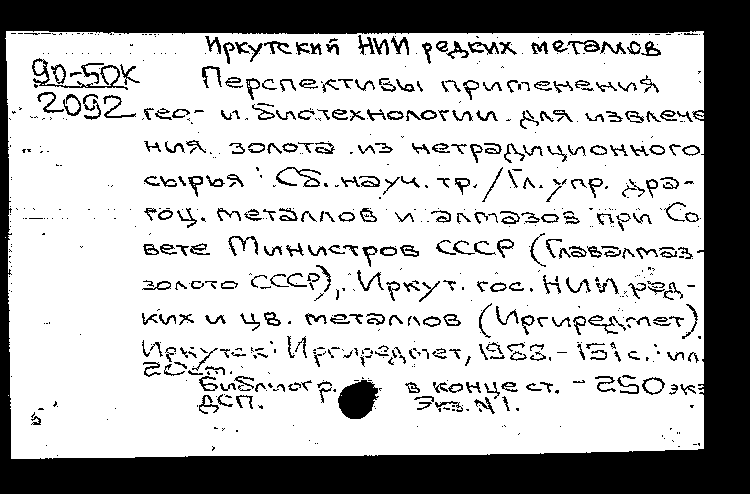 Иркутский НИИ редких металлов
90-50К Перспективы применения
2092 гео- и биотехнологии для извлече
ния золота из нетрадиционного
сырья : Сб. науч. тр. / Гл. упр. дра-
гоц. металлов и алмазов при Со
вете Министров СССР (Главалмаз-
золото СССР), Иркут. гос. НИИ ред-
ких и цв. металлов (Иргиредмет)
Иркутск : Иргиредмет, 1988. - 151 с. : ил.
20см.
Библиогр. в конце ст. - 250 экз
ДСП. Экз. N 1.